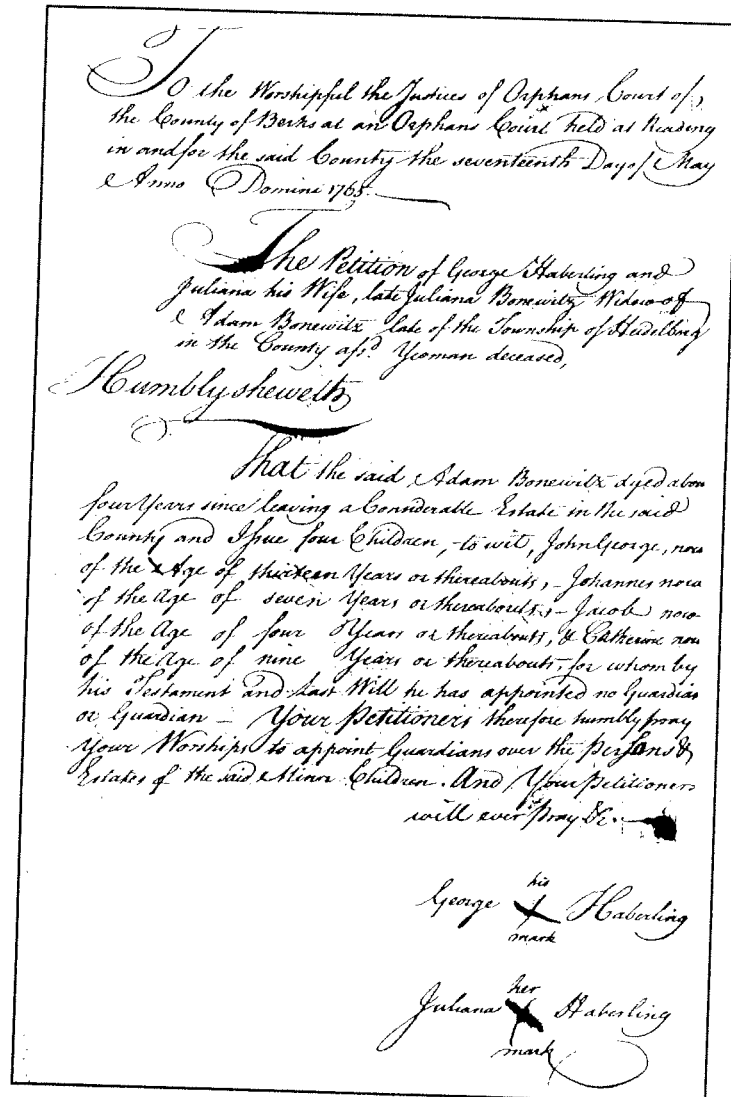 To the Worshipful the Justices of Orphans Court of
the County of Berks at an Orphans Court held at Reading
in and for the said County the seventeenth Day of May
Anno Domini 1765
The Petition of George Haberling and
Juliana his Wife, late Juliana Bonewitz Widow of
Adam Bonewitz late of the Township of Heidelberg
in the County afsd. Yeoman deceased,
Humbly sheweth
That the said Adam Bonewitz dyed abou
four Years since leaving a Considerable Estate in the said
County and Issue four Children, to wit, John George, now
of the Age of thirteen Years or thereabouts, - Johannes now
of the Age of seven Years or thereabouts, - Jacob now
of the Age of four Years or thereabouts, & Catherine now
of the Age of nine Years or thereabouts, for whom by
his Testament and Last Will he has appointed no Guardian
or Guardian - Your Petitioners therefore humbly pray
Your Worships to appoint Guardians over the Persons &
Estates of the said Minor Children. And Your Petitioners
will ever Pray &c.
his
George X Haberling
mark
her
Juliana X Haberling
mark